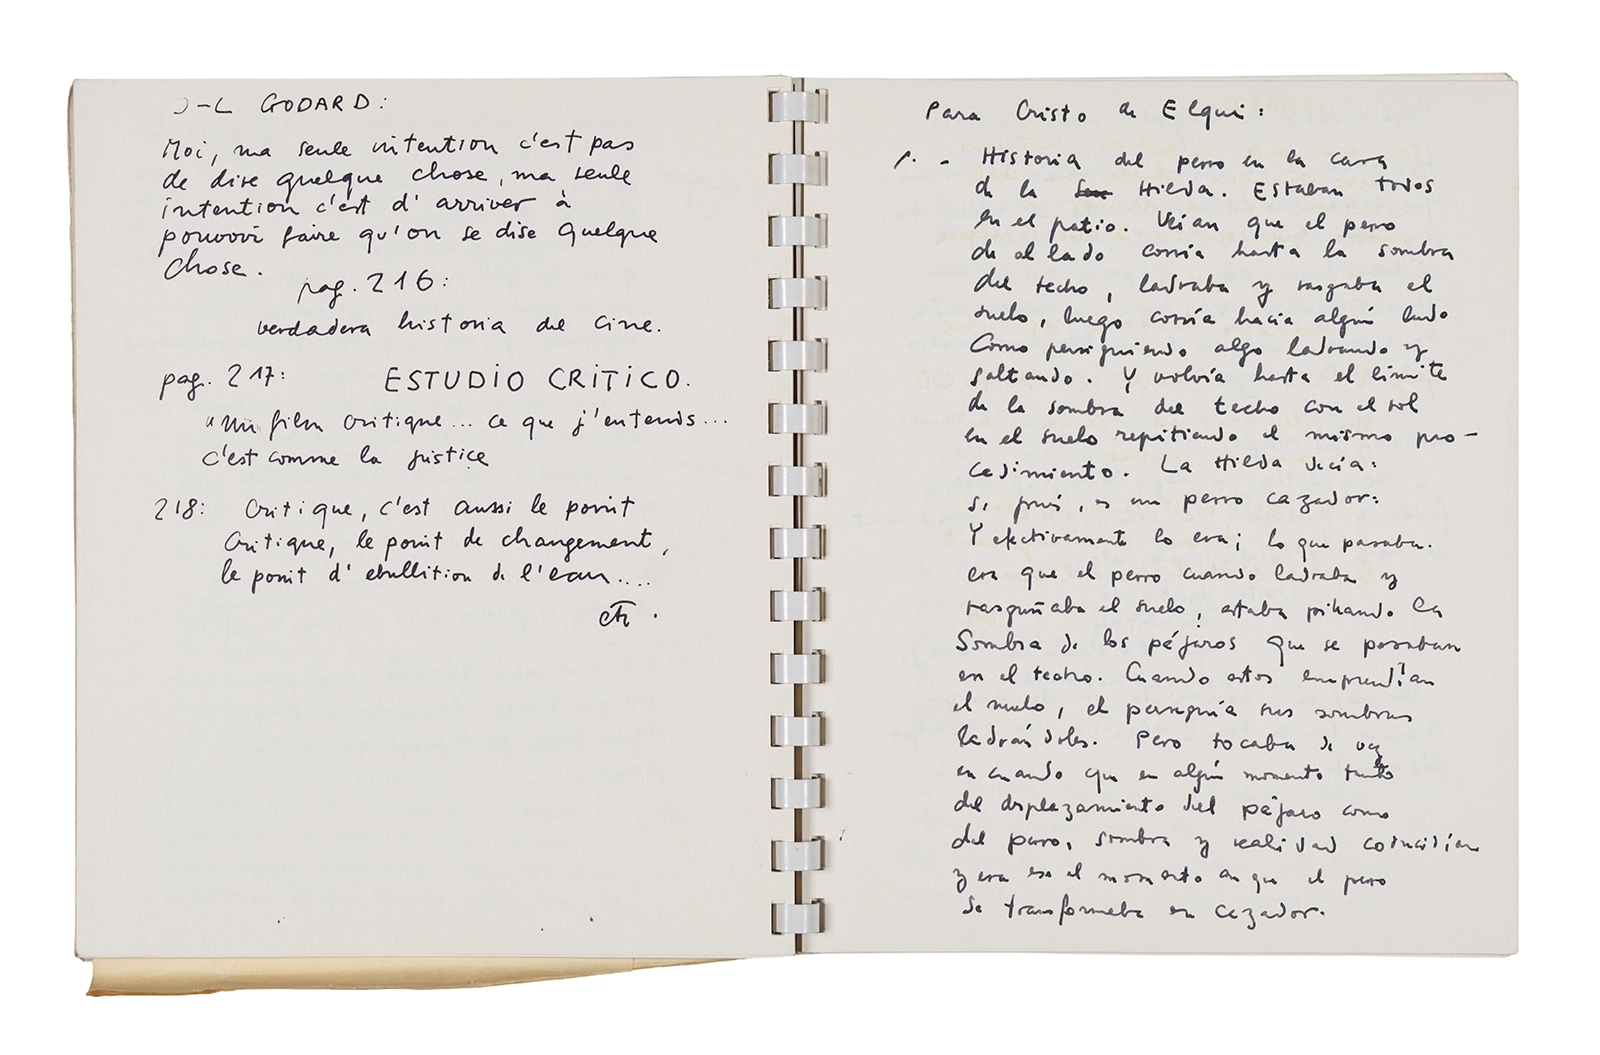 J-L GODARD:
Moi, ma seule intention c'est pas
de dire quelque chose, ma seule
intention c'est d'arriver à
pouvoir faire qu'on se dise quelque
chose.
pag. 216:
verdadera historia del cine.
pag. 217: ESTUDIO CRITICO.
"un film critique... ce que j'entends...
c'est comme la justice
218: Critique, c'est aussi le point
critique, le point de changement,
le point d'ebullition de l'eau....
Para Cristo de Elqui:
1. - Historia del perro en la casa
de la Hilda. Estaban todos
en el patio. Veian que el perro
de al lado corria hasta la sombra
del techo, ladraba y rasgaba el
suelo, luego corría hacia algún lado
Como persiguiendo algo ladrando y
saltando. Y volvía hasta el limite
de la sombra del techo con el sol
en el suelo repitiendo el mismo pro-
cedimiento. La Hilda decía:
si pués, es un perro cazador:
Y efectivamente lo era; lo que pasaba.
era que el perro cuando ladraba y
rasguñaba el suelo, estaba pillando la
Sombra de los pájaros que se posaban
en el techo. Cuando estos emprendían
el vuelo, el perseguía sus sombras
ladrándoles. Pero tocaba de vez
en cuando que en algún momento tanto
del desplazamiento del pájaro como
del perro, sombra y realidad coincidían
y era ese el momento en que el perro
se transformaba en cazador.